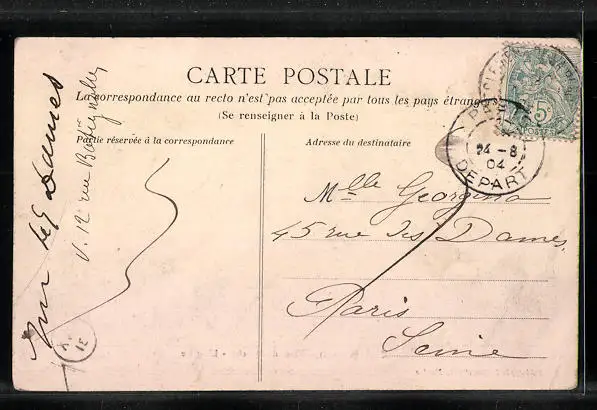 CARTE POSTALE
La correspondance au recto n'est pas acceptée par tous les pays étrang
(Se renseigner à la Poste)
Partie réservée à la correspondance
Adresse du destinataire
Mlle Georgina
45 rue des Dames
Paris
Seine
rue des Dames
V. 12 rue Batignolles
5c
POSTES
24-8
04
DEPART